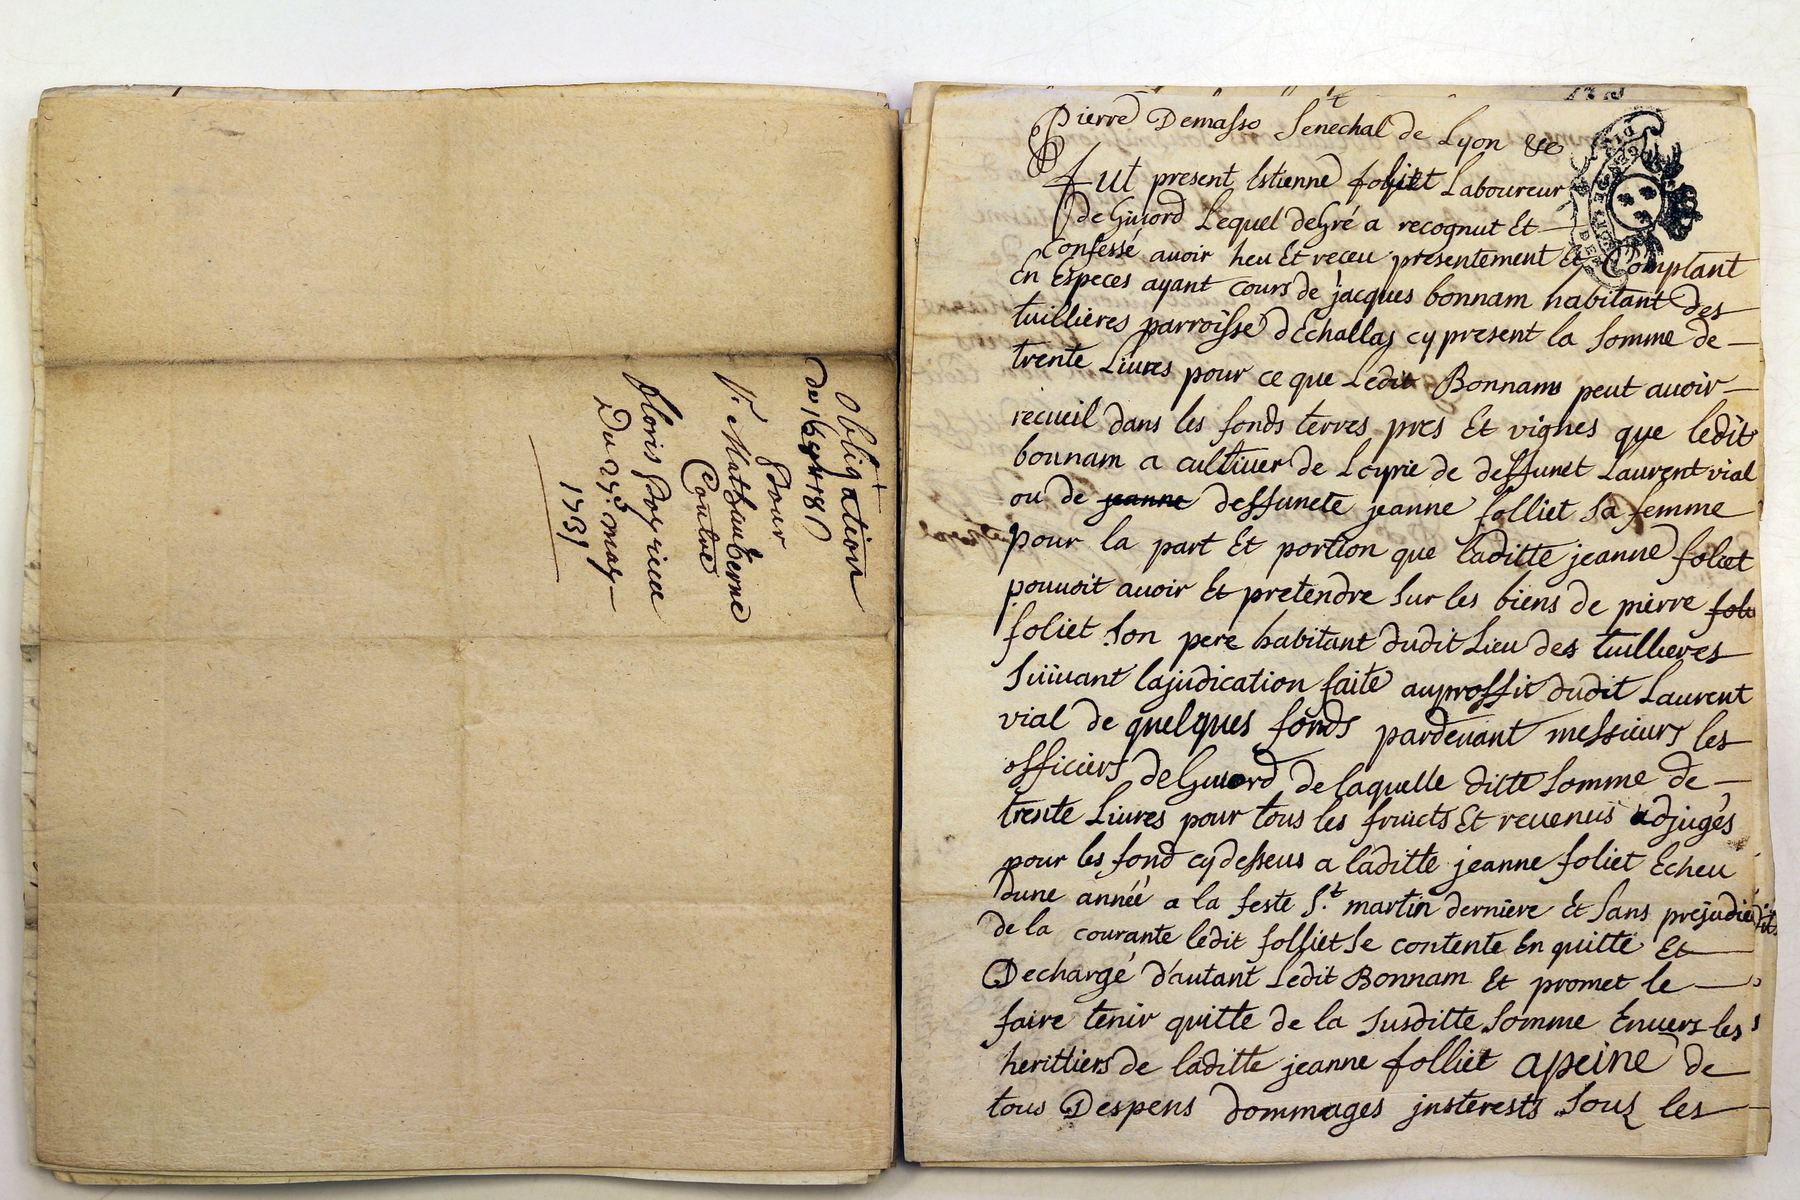 Obligation
de 180
Pour
Contre
Du 29e may
1731
Pierre Demasso Senechal de Lyon &c
Fut present Estienne foliet Laboureur
de Givord Lequel de Gré a recognut Et
Confessé avoir heu Et receu presentement Et Comptant
En Especes ayant cours de jacques bonnam habitant des
tuillieres parroisse d'Echallas cy present la somme de
trente Livres pour ce que Ledit Bonnam peut avoir
recueil dans les fonds terres pres Et vignes que ledit
bonnam a cultiver de Loyrie de deffunct Laurent vial
ou de jeanne deffuncte jeanne folliet sa femme
pour la part Et portion que laditte jeanne foliet
pouvoit avoir Et pretendre sur les biens de pierre foli
foliet son pere habitant dudit Lieu des tuillieres
suivant lajudication faite auproffit dudit Laurent
vial de quelques fonds pardevant messieurs les
officiers de Givord de laquelle ditte somme de
trente Livres pour tous les fruicts Et revenus adjugés
pour les fond cydesseus a laditte jeanne foliet Echeu
dune année a la feste St. martin derniere Et sans prejudice
de la courante ledit folliet se contente En quitte Et
Dechargé d'autant Ledit Bonnam Et promet le
faire tenir quitte de la susditte somme Envers les
herittiers de laditte jeanne folliet apeine de
tous Despens dommages insterests sous les